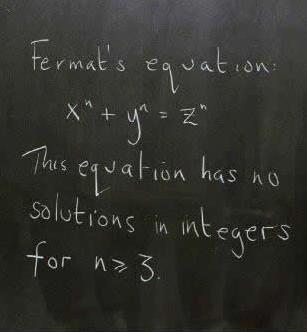 Fermat's equation:
xⁿ + yⁿ = zⁿ
This equation has no
solutions in integers
for n ≥ 3.